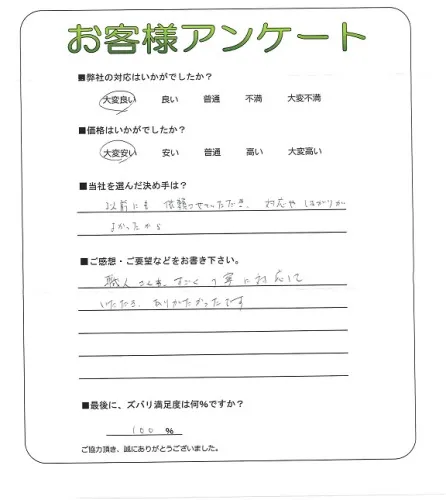 お客様アンケート
■弊社の対応はいかがでしたか?
大変良い 良い 普通 不満 大変不満
■価格はいかがでしたか?
大変安い 安い 普通 高い 大変高い
■当社を選んだ決め手は?
以前にも依頼させていただき、対応や仕上がりが
よかったから
■ご感想・ご要望などをお書き下さい。
職人さんも、すごく丁寧に対応して
いただき、ありがたかったです
■最後に、ズバリ満足度は何%ですか?
100 %
ご協力頂き、誠にありがとうございました。